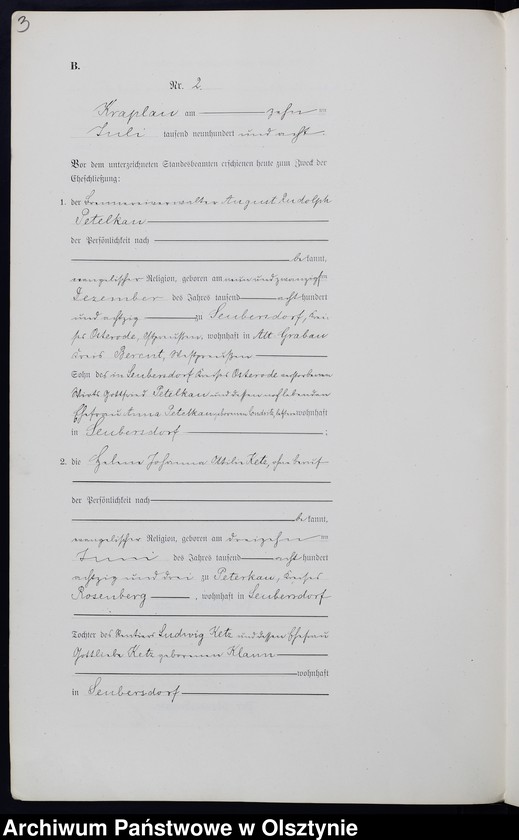 3
B.
Nr. 2.
Kraplau am zehn ten
Juli tausend neunhundert und acht.
Vor dem unterzeichneten Standesbeamten erschienen heute zum Zweck der
Eheschließung:
1. der Brennereiverwalter August Rudolph
Petelkau
der Persönlichkeit nach
bekannt,
evangelischer Religion, geboren am neunundzwanzigsten
Dezember des Jahres tausend acht hundert
und achtzig zu Seubersdorf, Krei-
ses Osterode, Ostpreußen, wohnhaft in Alt Grabau
Kreis Berent, Westpreußen
Sohn des in Seubersdorf Kreises Osterode verstorbenen
Wirts Gottfried Petelkau und dessen noch lebenden
Ehefrau Anna Petelkau geborenen wohnhaft
in Seubersdorf ;
2. die Helene Johanna Ottilie Ketz, ohne Beruf
der Persönlichkeit nach
bekannt,
evangelischer Religion, geboren am dreizehn ten
Juni des Jahres tausend acht hundert
achtzig und drei zu Peterkau, Kreises
Rosenberg , wohnhaft in Seubersdorf
Tochter des Rentiers Ludwig Ketz und dessen Ehefrau
Gottliebe Ketz geborenen Klann
wohnhaft
in Seubersdorf
Archiwum Państwowe w Olsztynie